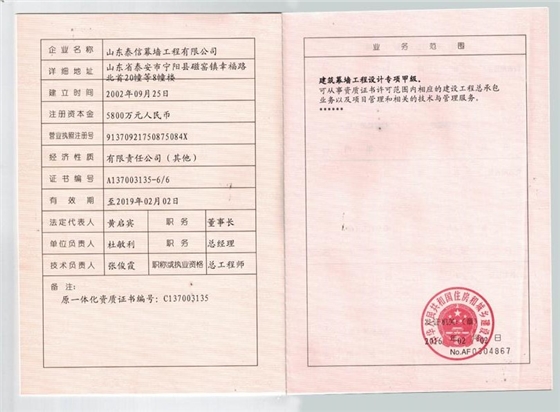 企业名称 山东泰信幕墙工程有限公司
详细地址 山东省泰安市宁阳县磁窑镇幸福路
北首20幢等8幢楼
建立时间 2002年09月25日
注册资本金 5800万元人民币
营业执照注册号 91370921750875084X
经济性质 有限责任公司(其他)
证书编号 A137003135-6/6
有效期 至2019年02月02日
法定代表人 黄启宾 职务 董事长
单位负责人 杜敏利 职务 总经理
技术负责人 张俊霞 职称或执业资格 总工程师
备注:
原一体化资质证书编号:C137003135
业务范围
建筑幕墙工程设计专项甲级。
可从事资质证书许可范围内相应的建设工程总承包
业务以及项目管理和相关的技术与管理服务。
******
中华人民共和国住房和城乡建设部
发证机关:(章)
2016年02月02日
No.AF0304867